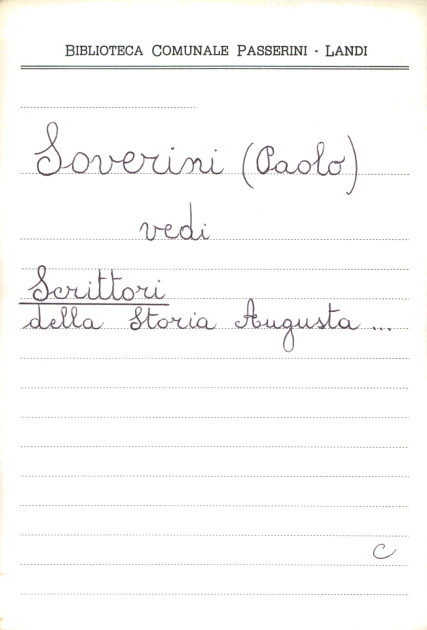 BIBLIOTECA COMUNALE PASSERINI - LANDI
Soverini (Paolo)
vedi
Scrittori
della Storia Augusta ...
C